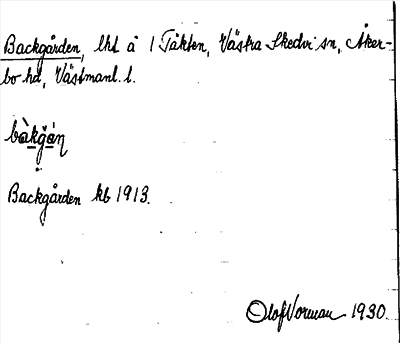 Backgården, lht å 1 Täkten, Västra Skedvi sn, Åker-
bo hd, Västmanl. l.
bàkgán
Backgården kb 1913.
Olof Vorman 1930.